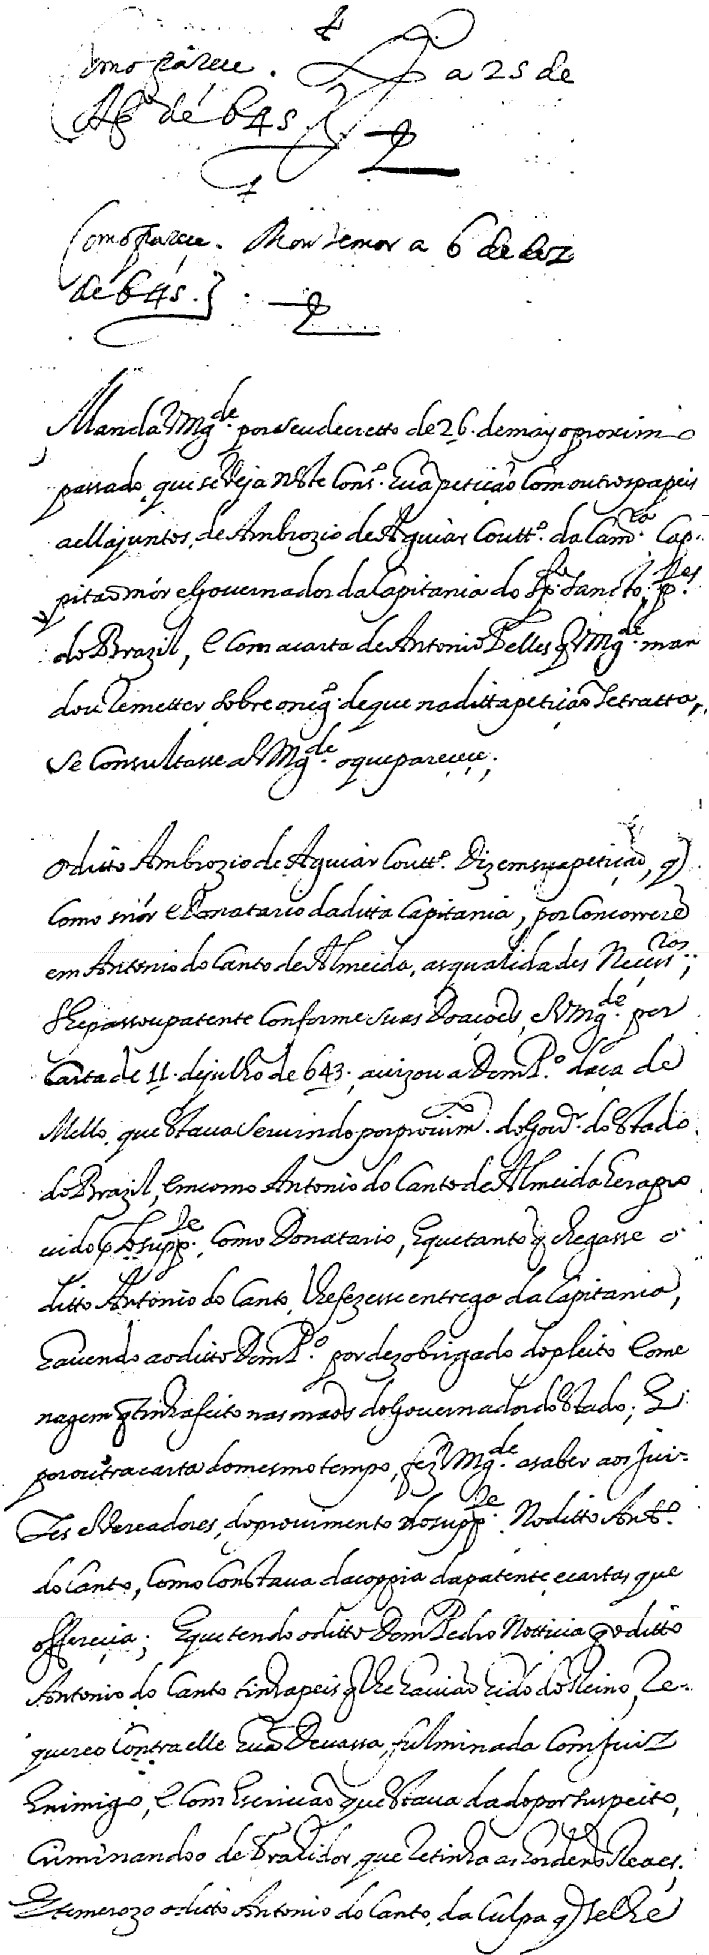 Como parece. a 25 de
Ag.to de 645
Como parece. Montemor a 6 de dez
de 645.
Manda V Mg.de por seu decretto de 26. de mayo proximo
passado, que se veja neste Cons.o huã petição com outros papeis
a ella juntos, de Ambrozio de Aguiar Coutt.o da Cam.ra Cap-
pitaõ mór e Governador da Capitania do Sp.to Sancto, p.tes
do Brazil, e com a carta de Antonio Telles q̃ V Mg.de man
dou remetter sobre o neg.o de que na ditta petição se tratta,
se consultasse a V Mg.de o que parecece;
O ditto Ambrozio de Aguiar Coutt.o diz em sua petição, q̃
como mór e Donatario da ditta Capitania, por concorrerẽ
em Antonio do Canto de Almeida, as qualidades necess.ras;
lhe passou patente conforme suas Doações, e V Mg.de por
carta de 11. de julho de 643. avizou a Dom P.o da
Mello, que estava servindo por provim.to do Gov.or do Estado
do Brazil, em como Antonio do Canto de Almeida hera pro
uido p lo supp.te, como Donatario, e que tanto q̃ chegasse o
ditto Antonio do Canto, lhe fezesse entrega da Capitania,
havendo ao ditto Dom P.o por dezobrigado do pleito e ome
nagem q̃ tinha feito nas mãos do Governador do Estado; E
por outra carta do mesmo tempo, fez V Mg.de a saber aos Jui-
zes e Vereadores, do provimento do supp.te no ditto Ant.o
do Canto, como constava da coppia da patente e cartas que
offerecia; E que tendo o ditto Dom Pedro notticia q̃ o ditto
Antonio do Canto tinha papeis q̃ lhe haviaõ hido do Reino, re-
quereo contra elle huã Devassa, fulminada com juiz
Enimigo, e com Escrivaõ que estava dado por suspeito,
Criminando o de Trahidor, que retinha as hordens Reaes;
E temerozo o ditto Antonio do Canto, da culpa q̃ se lhe